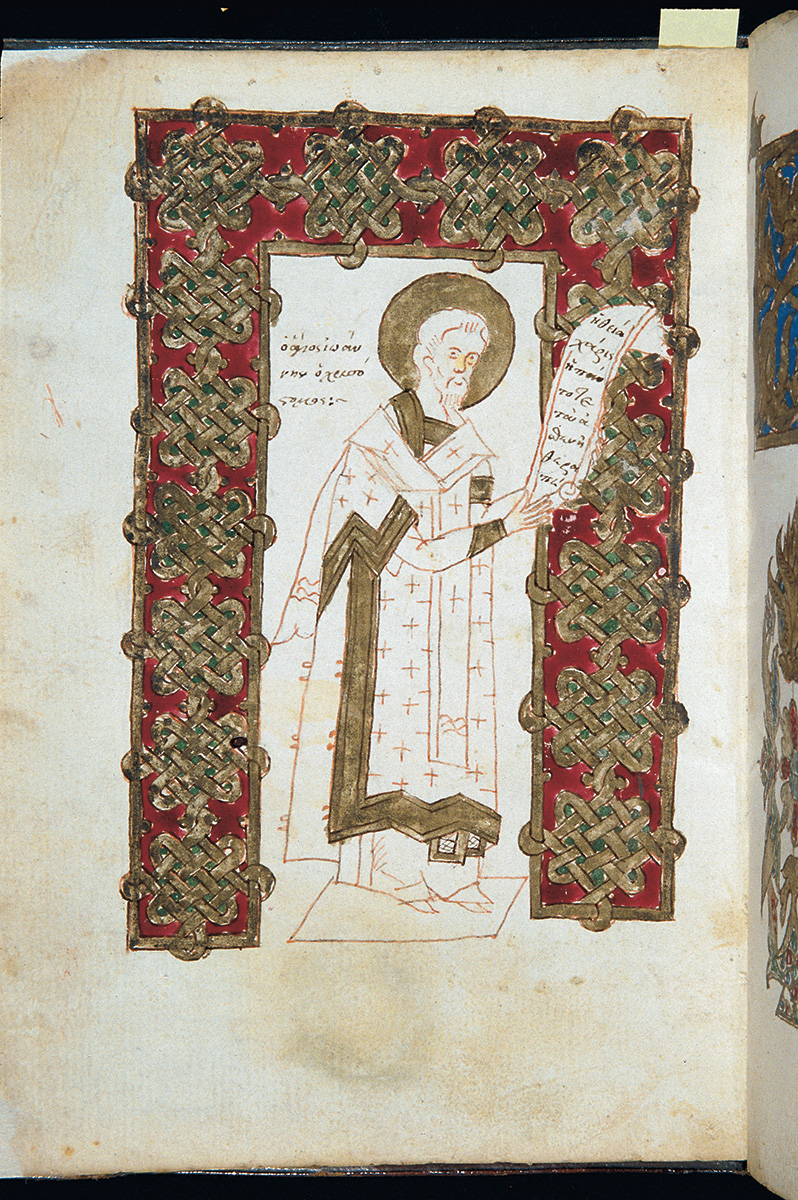 ὁ ἅγιος ἰωάν
νης ὁ χρυσό
στομος:~
ἡ θεία
χάρις
ἡ πάν
τοτε
τὰ ἀ
σθενῆ
θερα
πεύ